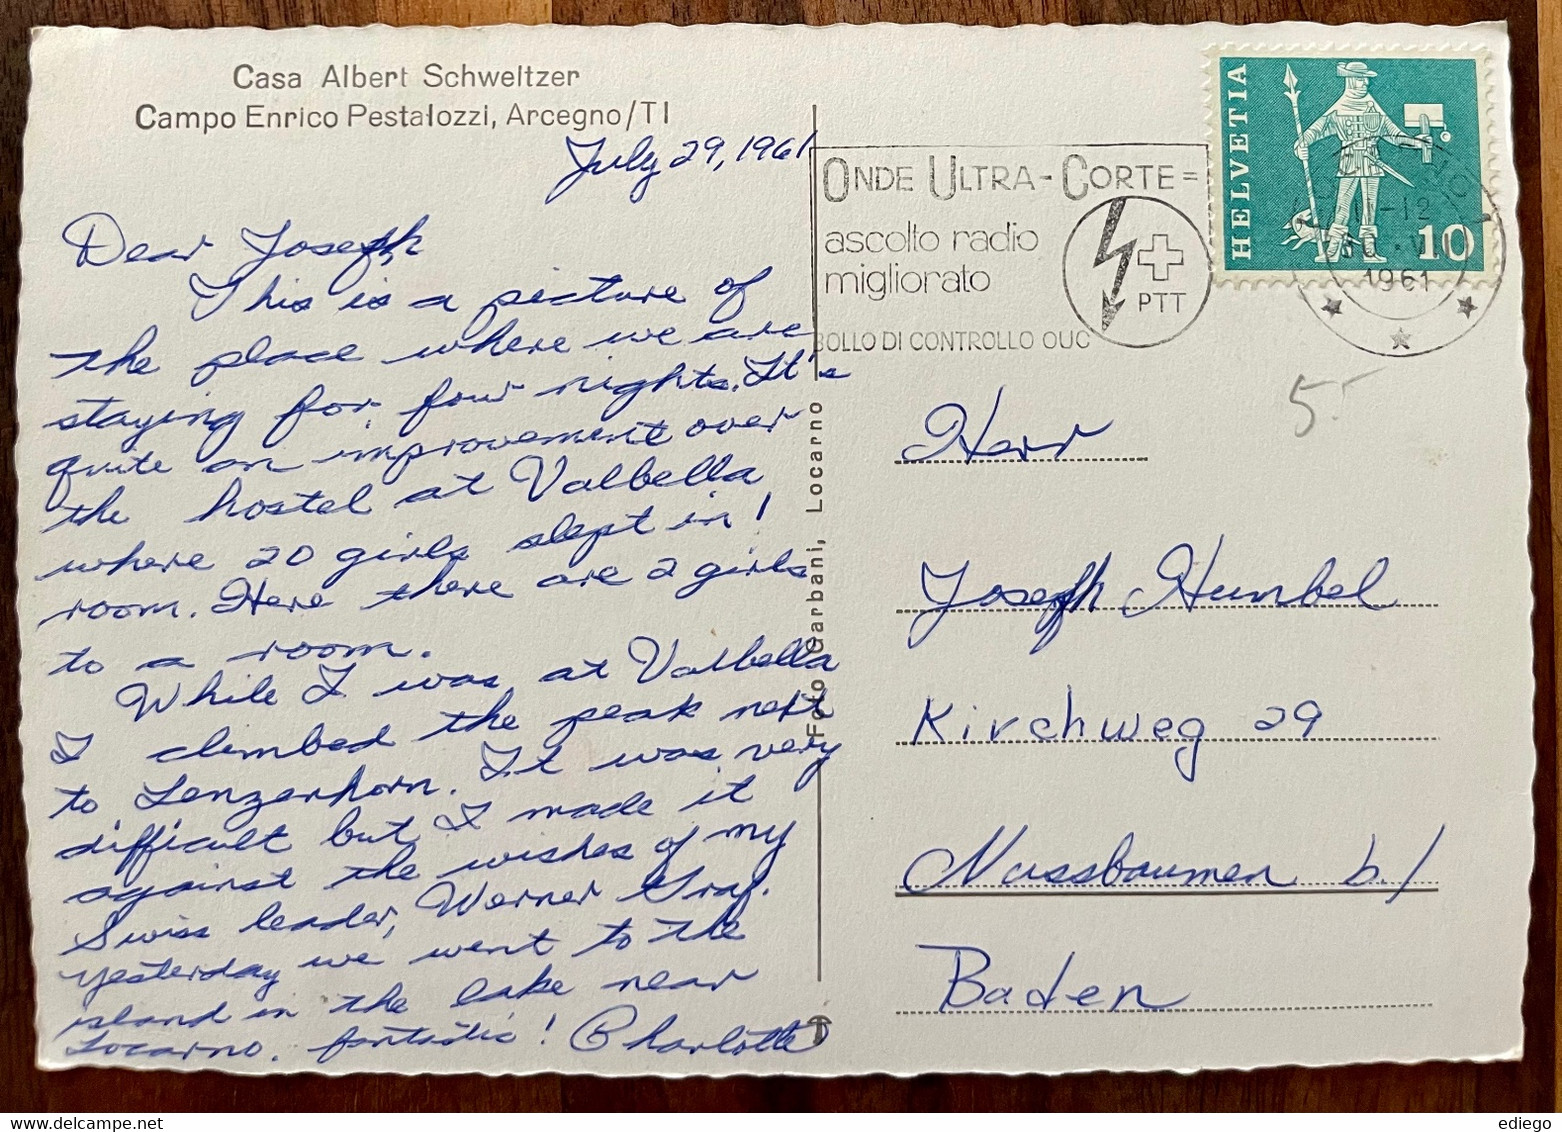 Casa Albert Schweitzer
Campo Enrico Pestalozzi, Arcegno/TI
July 29, 1961
Dear Joseph
This is a picture of
the place where we are
staying for four nights. It's
quite an improvement over
the hostel at Valbella
where 20 girls slept in 1
room. Here there are 2 girls
to a room.
While I was at Valbella
I climbed the peak next
to Lenzerhorn. It was very
difficult but I made it
against the wishes of my
Swiss leader, Werner Graf.
Yesterday we went to the
island in the lake near
Locarno. fantastic! Charlotte
Foto Garbani, Locarno
ONDE ULTRA-CORTE =
ascolto radio
migliorato
PTT
BOLLO DI CONTROLLO OUC
HELVETIA
10
11-12
30.VII
1961
5.-
Herr
Joseph Humbel
Kirchweg 29
Nussbaumen b./
Baden
ediego